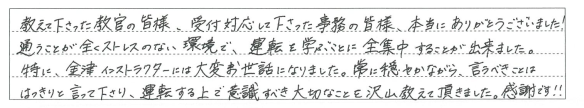 教えて下さった教官の皆様、受付対応して下さった事務の皆様、本当にありがとうございました!
通うことが全くストレスのない環境で、運転を学ぶことに全集中することが出来ました。
特に、金津インストラクターには大変お世話になりました。常に穏やかながら、言うべきことは
はっきりと言って下さり、運転する上で意識すべき大切なことを沢山教えて頂きました。感謝です!!